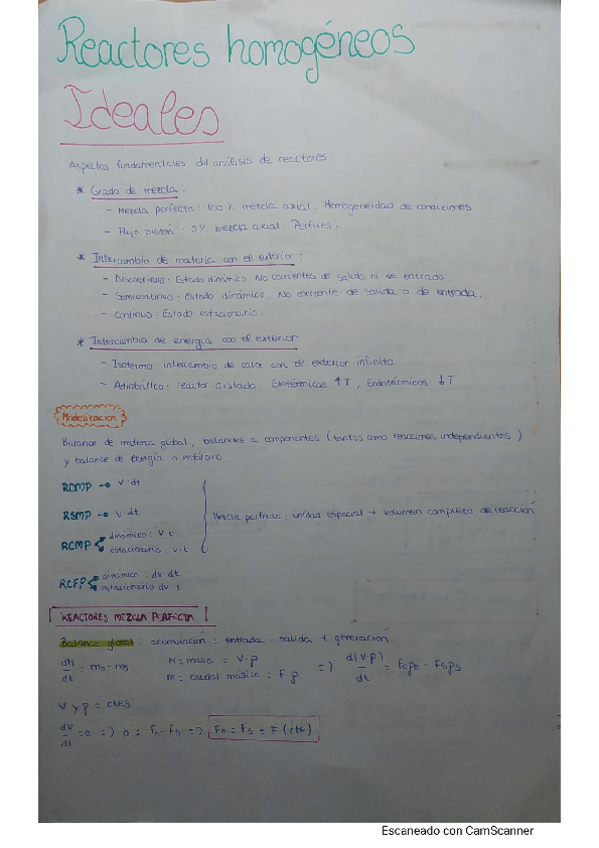 Reactores homogéneos
Ideales
Aspectos fundamentales del análisis de reactores.
* Grado de mezcla:
- Mezcla perfecta: 100% mezcla axial. Homogeneidad de condiciones
- Flujo pistón: 0% mezcla axial. Perfiles.
* Intercambio de materia con el exterior:
- Discontinuo: Estado dinámico. No corrientes de salida ni de entrada.
- Semicontinuo: Estado dinámico. No corriente de salida o de entrada.
- Continuo: Estado estacionario.
* Intercambio de energía con el exterior
- Isotermo: intercambio de calor con el exterior infinito
- Adiabático: reactor aislado. Exotérmicas ↑T, Endotérmicas ↓T
Modelización
Balance de materia global, balances a componentes (tantos como reacciones independientes)
y balance de energía o entálpico.
RDMP → V·dt
RSMP → V·dt
Mezcla perfecta: unidad espacial → volumen completo de reacción
RCMP dinámico: V·t
estacionario: V·t
RCFP dinámico: dV·dt
estacionario dV·t
REACTORES MEZCLA PERFECTA
Balance global: acumulación = entrada - salida + generación
dM/dt = m₀ - ms M = masa = V·ρ m = caudal másico = F·ρ => d(V·ρ)/dt = F₀ρ₀ - Fsρs
V y ρ = ctes
dV/dt = 0 => 0 = F₀ - Fs => F₀ = Fs = F (cte)
Escaneado con CamScanner